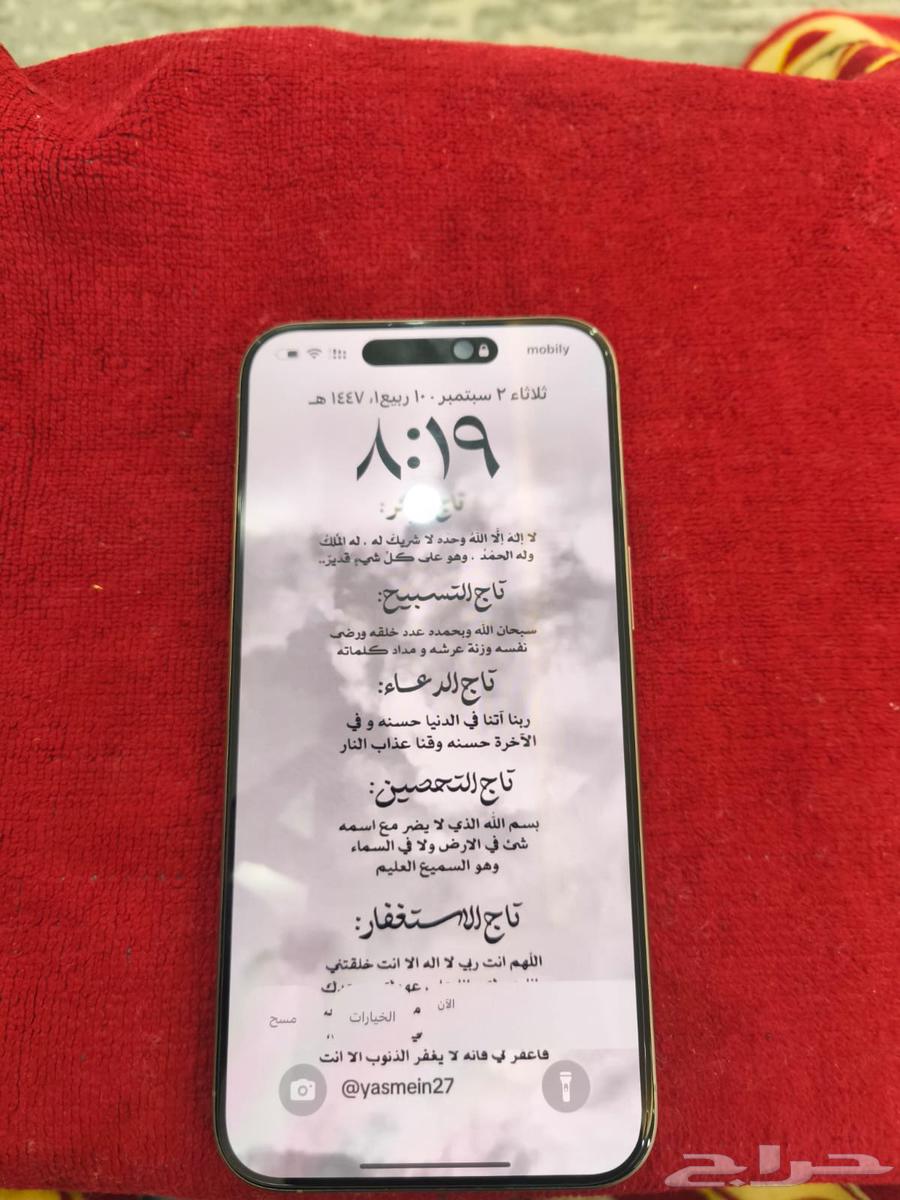 mobily
ثلاثاء ٢ سبتمبر، ١٠ ربيع١، ١٤٤٧ هـ
٨:١٩
تاج
لا إله إلا الله وحده لا شريك له ، له الملك
وله الحمد ، وهو على كل شيء قدير..
تاج التسبيح:
سبحان الله وبحمده عدد خلقه ورضى
نفسه وزنة عرشه و مداد كلماته
تاج الدعاء:
ربنا آتنا في الدنيا حسنه و في
الآخرة حسنه وقنا عذاب النار
تاج التحصين:
بسم الله الذي لا يضر مع اسمه
شئ في الارض ولا في السماء
وهو السميع العليم
تاج الاستغفار:
اللهم انت ربي لا اله الا انت خلقتني
الآن
الخيارات
مسح
فاغفر لي فانه لا يغفر الذنوب الا انت
@yasmein27
حراج